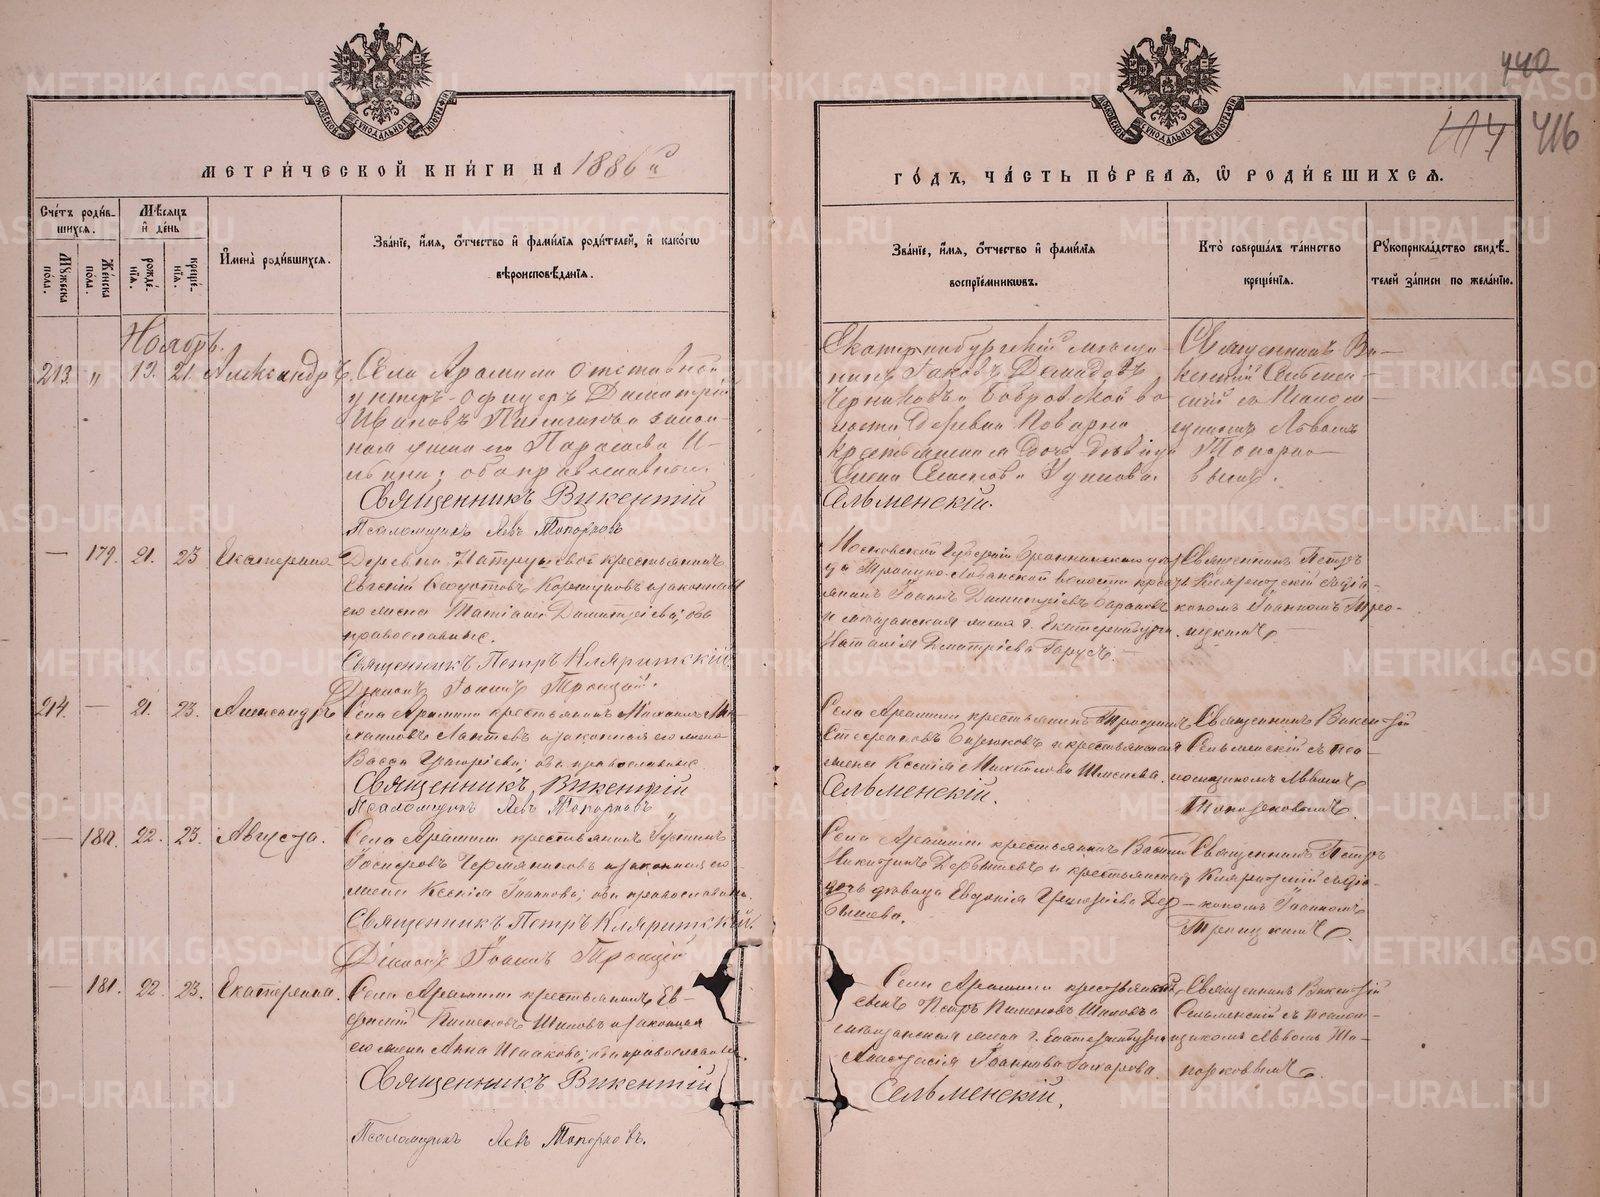 440
414 416
МЕТРИЧЕСКОЙ КНИГИ НА 1886й
ГОДЪ, ЧАСТЬ ПЕРВАЯ, Ѡ РОДИВШИХСЯ.
Счетъ родившихся.
Мужеска пола.
Женска пола.
Мѣсяцъ и день
рожденія.
крещенія.
Имена родившихся.
Званіе, имя, отчество и фамилія родителей, и какогѡ
вѣроисповѣданія.
Званіе, имя, отчество и фамилія
воспріемниковъ.
Кто совершалъ таинство
крещенія.
Рукоприкладство свидѣ-
телей записи по желанію.
Ноябрь.
213. " 19. 21. Александръ.
Села Арамили отставной
унтеръ-офицеръ Димитрій
Ивановъ и закон-
ная жена его Параскева И-
оба православные.
Священникъ Викентій
Псаломщикъ Левъ Топорковъ
Екатеринбургскій мѣща-
нинъ Іаковъ Демидовъ
Черниковъ и Бобровской во-
лости деревни
крестьянская дочь дѣвица
Елена
Сельменскій.
Священникъ Ви-
кентій Сельмен-
скій съ Псалом-
щикомъ Львомъ
Топорко-
вымъ.
— 179. 21. 23 Екатерина
Деревни крестьянинъ
Евгеній и законная
его жена Татіана Димитріева; оба
православные.
Священникъ Петръ Кляритскій.
Діаконъ Іоаннъ Троицкій.
Московской Губерніи уѣз-
да Троицко-Лобанской волости кресть-
янинъ Іоаннъ Димитріевъ Барановъ
и мѣщанская жена г. Екатеринбурга
Наталія Димитріева
Священникъ Петръ
Кляритскій съ діа-
кономъ Іоанномъ Тро-
ицкимъ
214. — 21. 23. Александръ
Села Арамили крестьянинъ Михаилъ Ми-
хайловъ Лаптевъ и законная его жена
Васса Григоріева; оба православные.
Священникъ Викентій
Псаломщикъ Левъ Топорковъ
Села Арамили крестьянинъ
Стефановъ и крестьянская
жена Ксенія Михайлова
Сельменскій.
Священникъ Викентій
Сельменскій съ пса-
ломщикомъ Львомъ
Топорковымъ.
— 180. 22. 23. Августа.
Села Арамили крестьянинъ
Чермяниновъ и законная его
жена Ксенія Іоаннова; оба православные.
Священникъ Петръ Кляритскій.
Діаконъ Іоаннъ Троицкій
Села Арамили крестьянинъ
Никитинъ Дербышевъ и крестьянская
дочь дѣвица Евдокія Дер-
бышева.
Священникъ Петръ
Кляритскій съ діа-
кономъ Іоанномъ
Троицкимъ.
— 181. 22. 23. Екатерина.
Села Арамили крестьянинъ Ев-
Пименовъ Шиповъ и законная
его жена Анна Исаакова; оба православные.
Священникъ Викентій
Псаломщикъ Левъ Топорковъ.
Села Арамили крестьянскій
сынъ Петръ Пименовъ Шиповъ и
мѣщанская жена г. Екатеринбурга
Анастасія Іоаннова Захарова.
Сельменскій.
Священникъ Викентій
Сельменскій съ Псалом-
щикомъ Львомъ То-
порковымъ.
METRIKI.GASO-URAL.RU